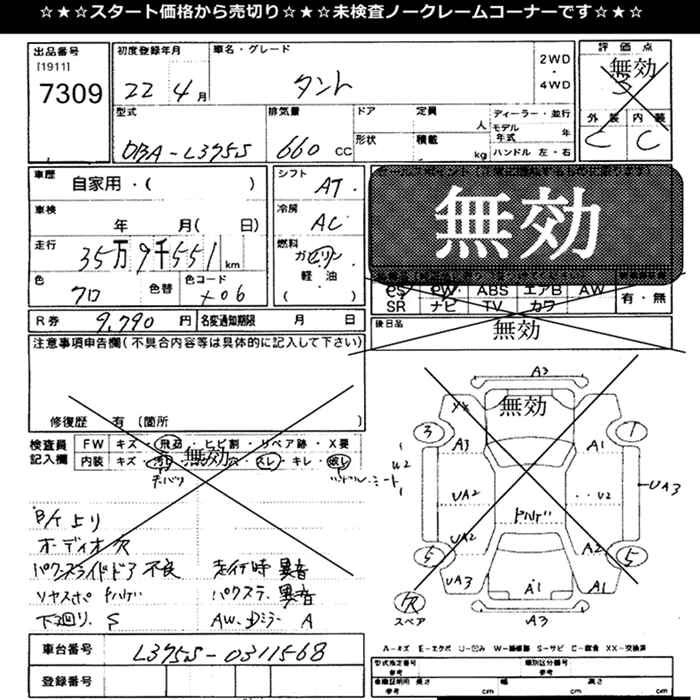 ☆★☆★スタート価格から売切り☆★☆★未検査ノークレームコーナーです☆★☆
出品番号
[1911]
7309
初度登録年月
22 4月
車名・グレード
タント
2WD
・
4WD
評価点
無効
3
外装 内装
C C
型式
DBA-L375S
排気量
660 CC
ドア
形状
定員
人
積載
kg
ディーラー・並行
モデル年式 年
ハンドル 左・右
車歴
自家用・( )
車検
年 月( 日)
走行
35万9千551 km
色
クロ
色替
色コード
X06
シフト
AT
冷房
AC
燃料
ガソリン
軽・油
( )
無効
ABS エアB AW
SR ナビ TV カワ
有・無
R券 9,790 円
名変通知期限 月 日
後日品
無効
注意事項申告欄(不具合内容等は具体的に記入して下さい)
修復歴 有 (箇所 )
検査員記入欄
FW キズ・飛石・ヒビ割・リペア跡・X要
内装 キズ・スレ・キレ・破レ
無効
オーディオ欠
パワースライドドア不良
走行時異音
パワステ、異音
下廻り、S
AW、Dミラー A
車台番号
L375S-0311568
登録番号
A3
無効
3
A3
A1
1
W2
UA2
U2
UA3
UA2
A2
5
5
UA3
A1
A1
欠
スペア
A3
A-キズ E-エクボ U-凹み W-補修跡 S-サビ C-腐食 XX-交換済
型式指定番号
参考
類別区分番号
参考
車検証明用 長さ 幅 高さ
参考 cm cm cm